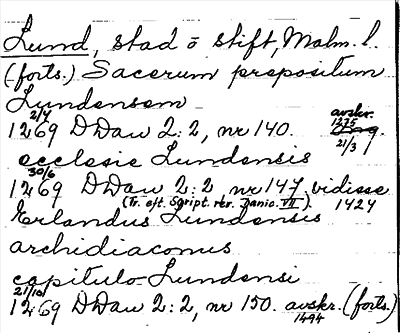 Lund, stad o stift, Malm. l.
(forts.) Sacerum prepositum
Lundensem
2/4 avskr. 1275
1269 DDan 2:2, nr 140. Orig. 21/3
ecclesie Lundensis
30/6
1269 DDan 2:2, nr 147, vidisse
(Tr. eft. Script. rer. Danic. VII). 1424
Erlandus Lundensis
archidiaconus
capitulo Lundensi
21/10
1269 DDan 2:2, nr 150. avskr. (forts.)
1494